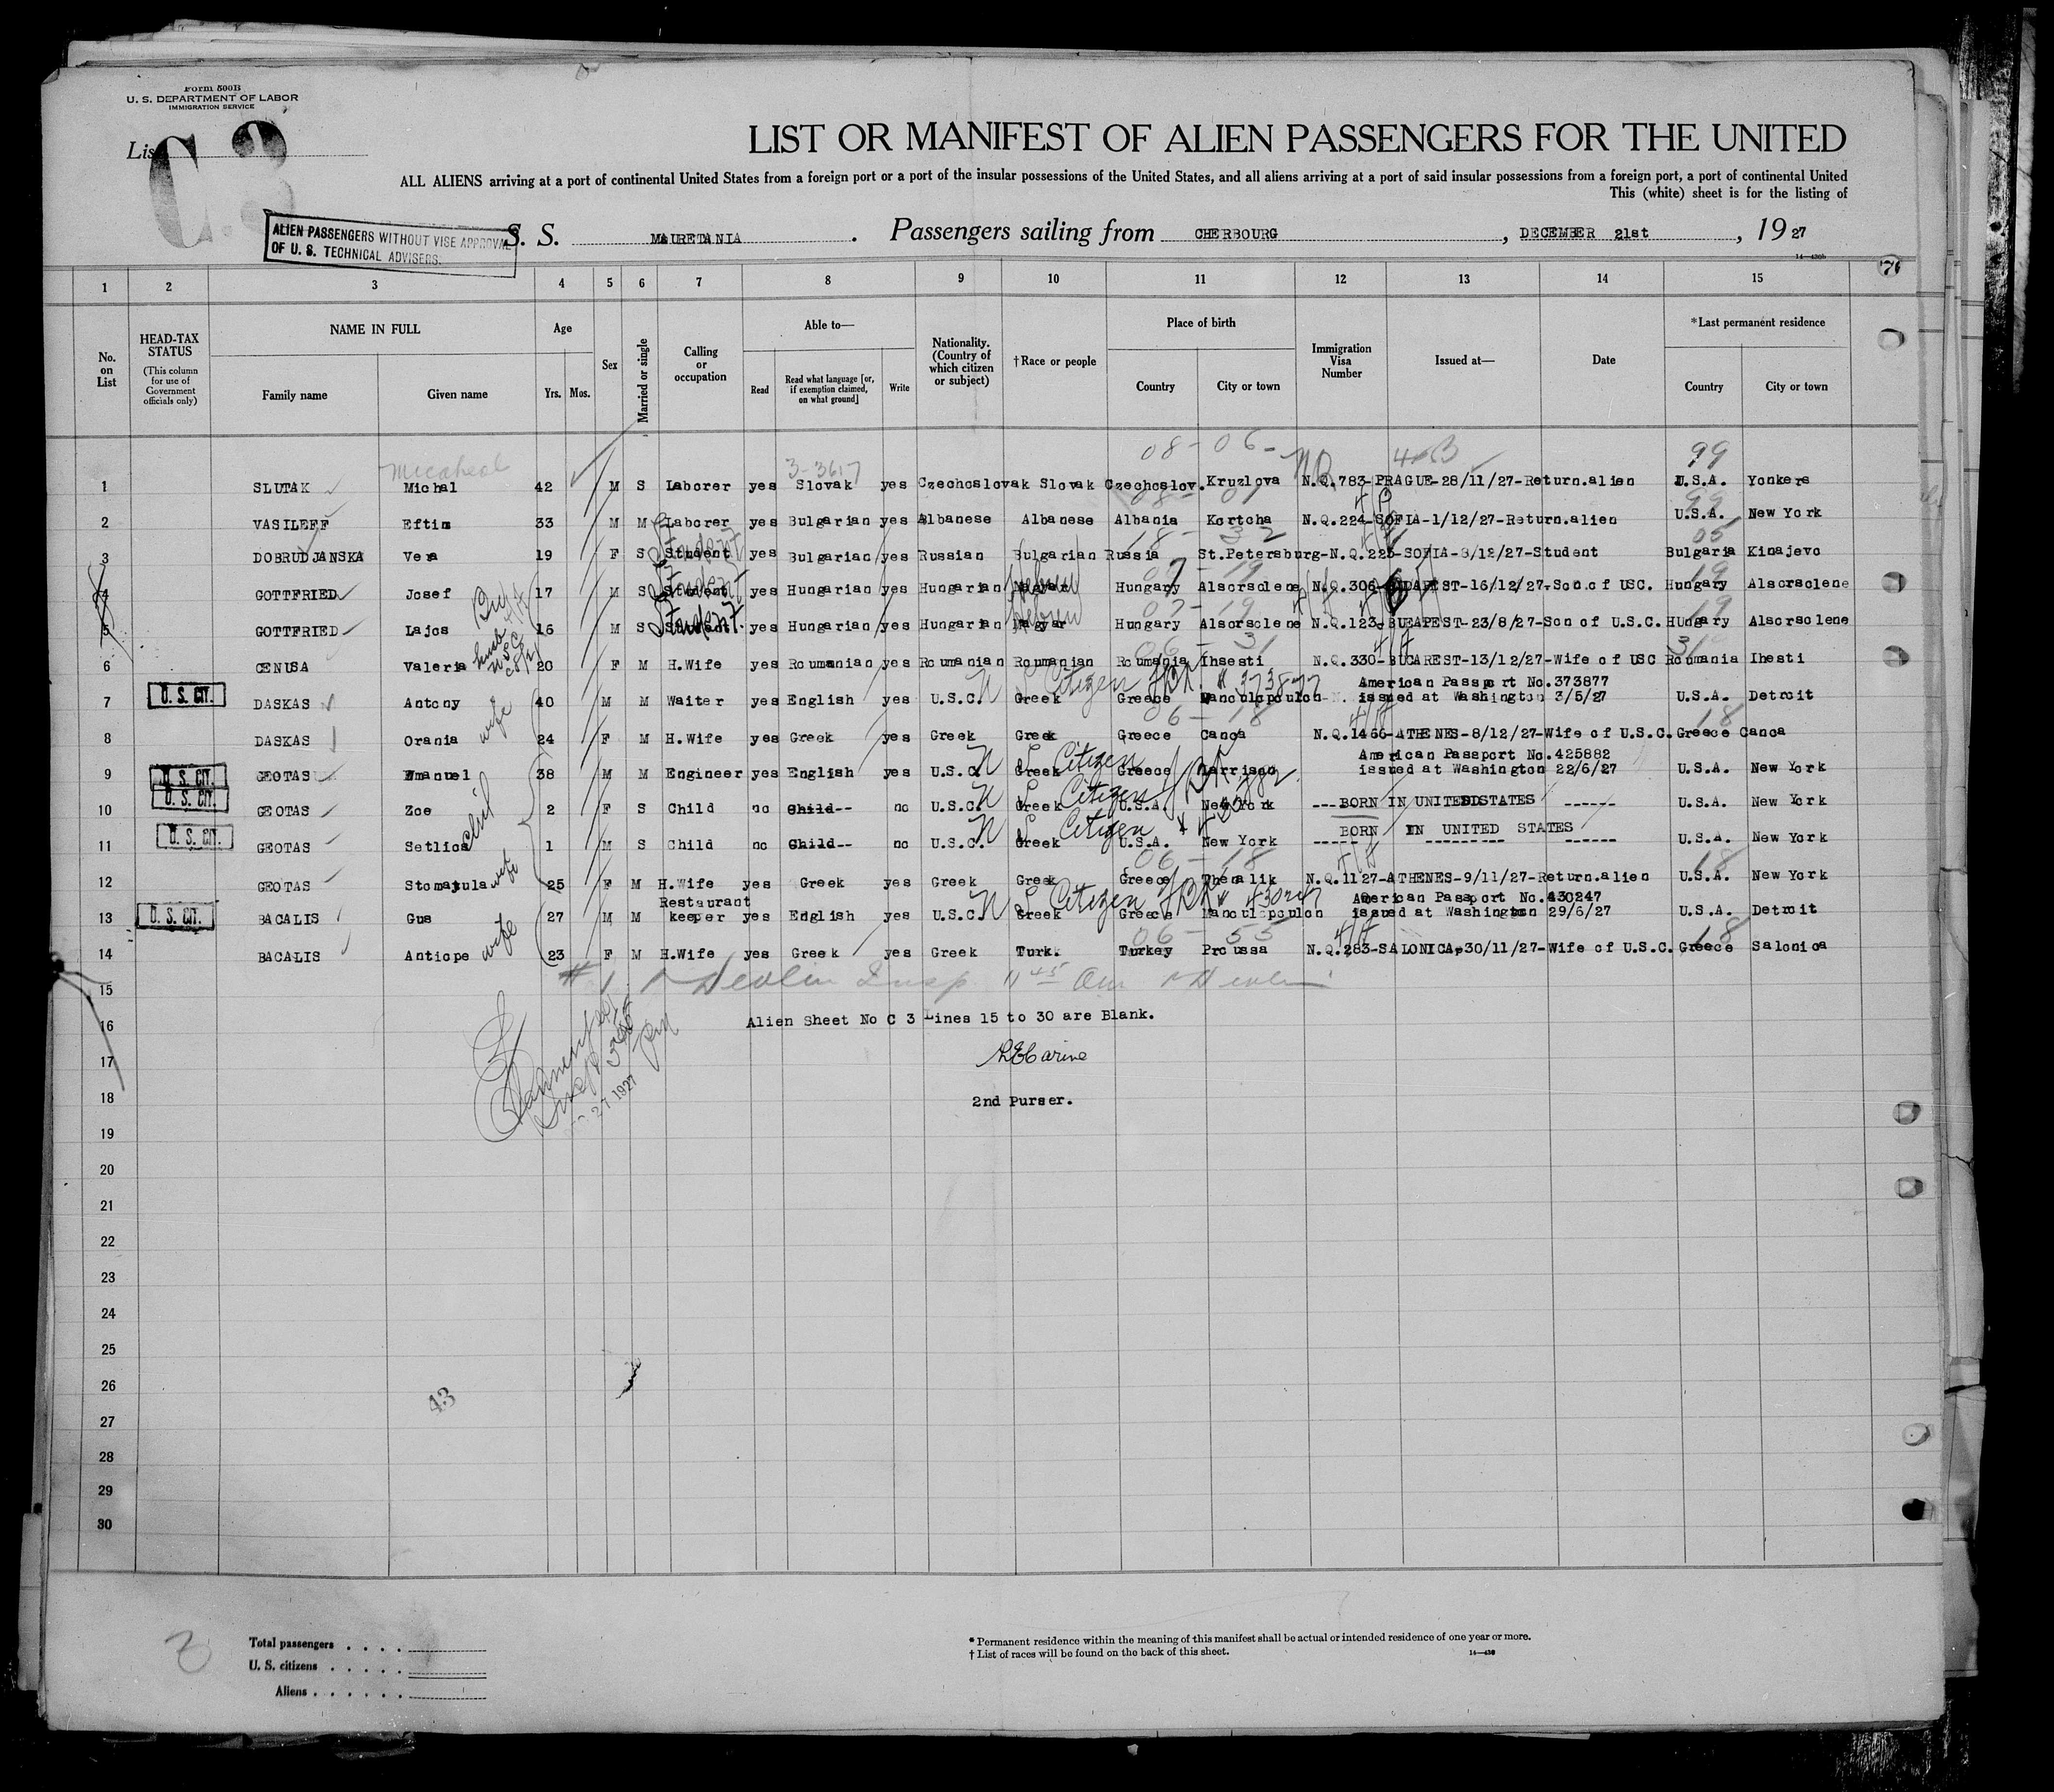 Form 500B
U. S. DEPARTMENT OF LABOR
IMMIGRATION SERVICE
C.3
LIST OR MANIFEST OF ALIEN PASSENGERS FOR THE UNITED
ALL ALIENS arriving at a port of continental United States from a foreign port or a port of the insular possessions of the United States, and all aliens arriving at a port of said insular possessions from a foreign port, a port of continental United
This (white) sheet is for the listing of
ALIEN PASSENGERS WITHOUT VISE APPROVAL
OF U. S. TECHNICAL ADVISERS.
S. S. MAURETANIA. Passengers sailing from CHERBOURG, DECEMBER 21st, 1927
14—430b
1 2 3 4 5 6 7 8 9 10 11 12 13 14 15
No. on List
HEAD-TAX STATUS
(This column for use of Government officials only)
NAME IN FULL
Family name Given name
Age
Yrs. Mos.
Sex
Married or single
Calling or occupation
Able to—
Read Read what language [or, if exemption claimed, on what ground] Write
Nationality. (Country of which citizen or subject)
†Race or people
Place of birth
Country City or town
Immigration Visa Number
Issued at—
Date
*Last permanent residence
Country City or town
Micaheal 3-3617 08-06- 99
1 SLUTAK Michal 42 M S Laborer yes Slovak yes Czechoslovak Slovak Czechoslov. Kruzlova N.Q.783-PRAGUE-28/11/27-Return.alien U.S.A. Yonkers
2 VASILEFF Eftim 33 M M Laborer yes Bulgarian yes Albanese Albanese Albania Kortcha N.Q.224-SOFIA-1/12/27-Return.alien U.S.A. New York
3 DOBRUDJANSKA Vera 19 F S Student yes Bulgarian yes Russian Bulgarian Russia St.Petersburg-N.Q.225-SOFIA-8/12/27-Student Bulgaria Kinajevo
4 GOTTFRIED Josef 17 M S Student yes Hungarian yes Hungarian Hebrew Hungary Alsorsolene N.Q.306-BUDAPEST-16/12/27-Son.of USC. Hungary Alsorsolene
5 GOTTFRIED Lajos 16 M S Student yes Hungarian yes Hungarian Magyar Hebrew Hungary Alsorsolene N.Q.123-BUDAPEST-23/8/27-Son of U.S.C. HUngary Alsorsolene
6 CENUSA Valeria 20 F M H.Wife yes Roumanian yes Roumanian Roumanian Roumania Ihsesti N.Q.330-BUCAREST-13/12/27-Wife of USC Roumania Ihesti
U S Citizen # 373877 American Passport No.373877
7 U. S. CIT. DASKAS Antony 40 M M Waiter yes English yes U.S.C. Greek Greece Mancolopoulon issued at Washington 3/5/27 U.S.A. Detroit
8 DASKAS Orania wife 24 F M H.Wife yes Greek yes Greek Greek Greece Canea N.Q.1466-ATHENES-8/12/27-Wife of U.S.C. Greece Canoa
U S Citizen American Passport No.425882
9 U. S. CIT. GEOTAS Emanuel 38 M M Engineer yes English yes U.S.C. Greek Greece Larrison issued at Washington 22/6/27 U.S.A. New York
U S Citizen
10 U. S. CIT. GEOTAS Zoe 2 F S Child no Child-- no U.S.C. Greek U.S.A. New York ---BORN IN UNITED STATES ------ U.S.A. New York
U S Citizen BORN IN UNITED STATES
11 U. S. CIT. GEOTAS Setlios 1 M S Child no Child-- no U.S.C. Greek U.S.A. New York ----- --------- ------ U.S.A. New York
12 GEOTAS Stomatula wife 25 F M H.Wife yes Greek yes Greek Greek Greece Thenalik N.Q.1127-ATHENES-9/11/27-Return.alien U.S.A. New York
Restaurant U S Citizen # 430247 American Passport No.430247
13 U. S. CIT. BACALIS Gus 27 M M keeper yes English yes U.S.C. Greek Greece Mancolopoulon issued at Washington 29/6/27 U.S.A. Detroit
14 BACALIS Antiope wife 23 F M H.Wife yes Greek yes Greek Turk. Turkey Proussa N.Q.283-SALONICA-30/11/27-Wife of U.S.C. Greece Salonica
15
16 Alien Sheet No C 3 Lines 15 to 30 are Blank.
17
18 2nd Purser.
19
20
21
22
23
24
25
26
43
27
28
29
30
3
Total passengers . . . .
U. S. citizens . . . . .
Aliens . . . . . .
* Permanent residence within the meaning of this manifest shall be actual or intended residence of one year or more.
† List of races will be found on the back of this sheet.
14—430